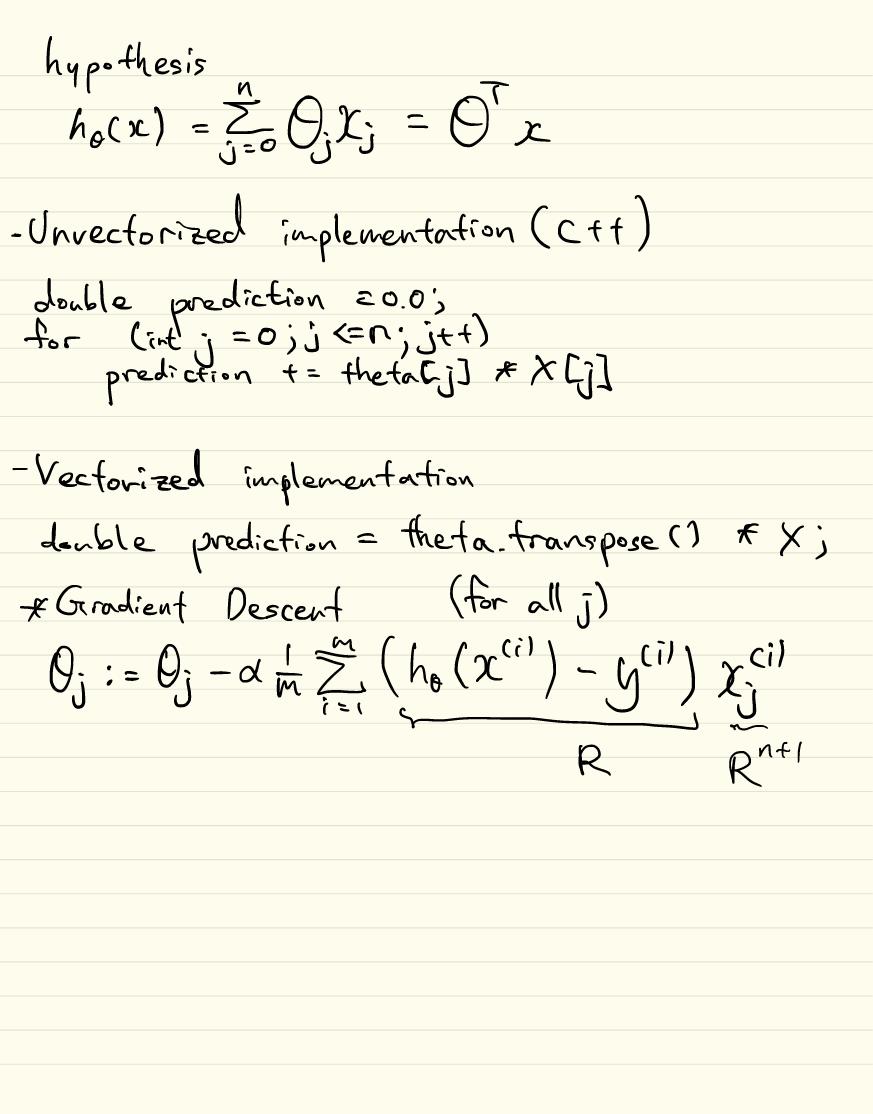 hypothesis
h_θ(x) = Σ_{j=0}^{n} θ_j x_j = θ^T x
- Unvectorized implementation (C++)
double prediction = 0.0;
for (int j = 0; j <= n; j++)
prediction += theta[j] * X[j]
- Vectorized implementation
double prediction = theta.transpose() * X;
* Gradient Descent (for all j)
θ_j := θ_j - α 1/m Σ_{i=1}^{m} (h_θ(x^{(i)}) - y^{(i)}) x_j^{(i)}
R R^{n+1}